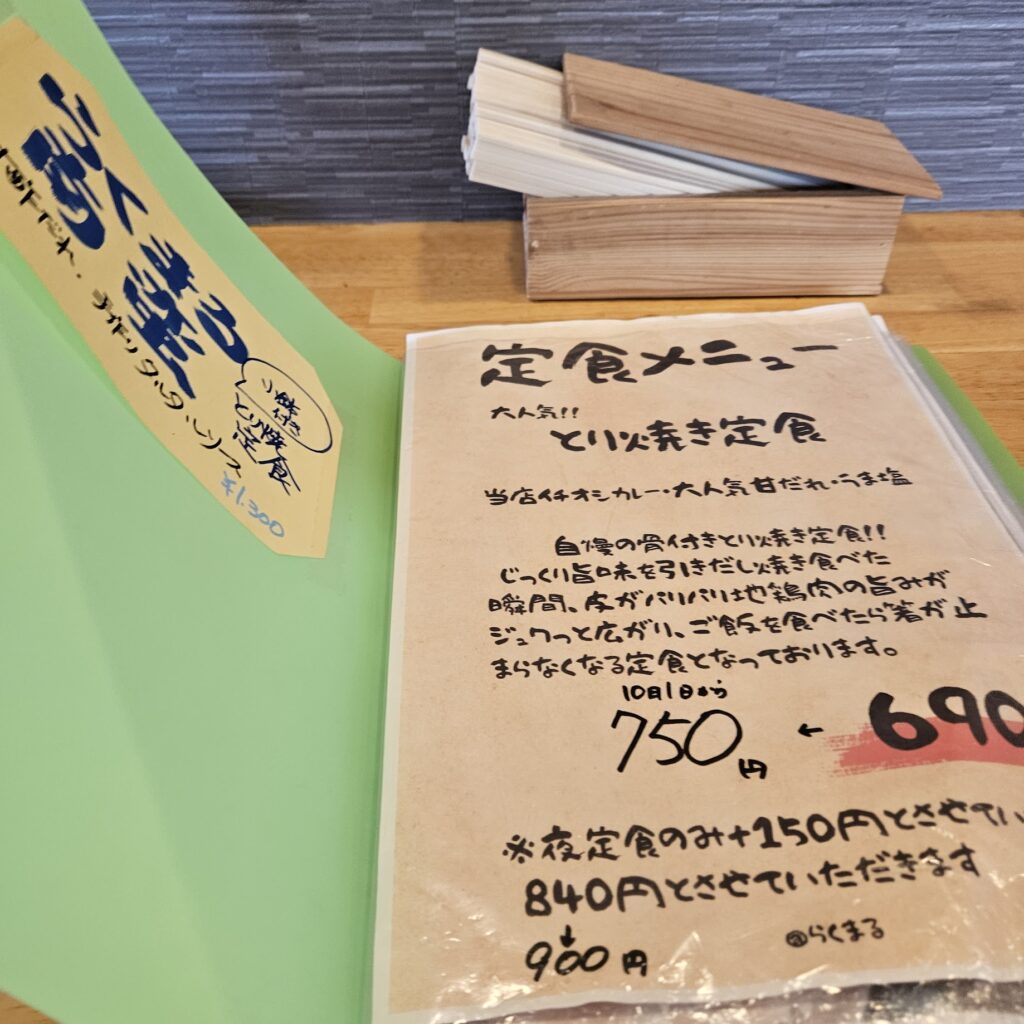 らくまる
小鉢付き
とり焼
定食
¥1.300
定食メニュー
大人気!!
とり焼き定食
当店イチオシカレー・大人気甘だれ・うま塩
自慢の骨付きとり焼き定食!!
じっくり旨味を引きだし焼き食べた
瞬間、皮がパリパリ地鶏肉の旨みが
ジュワっと広がり、ご飯を食べたら箸が止
まらなくなる定食となっております。
10月1日から
750円 ← 690
※夜定食のみ+150円とさせてい
840円とさせていただきます
↓
900円
@らくまる